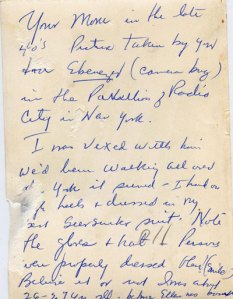 Your Mom in the late
40's Picture taken by your
Ebenezer (camera bug)
in the Pavillion of Radio
City in New York.
I was vexed with him
We'd been walking all over
York it seemed - I had on
heels & dressed in my
Seersucker suit. Note
the gloves & hat!! Persons
were properly dressed then
Believe it or not I was about